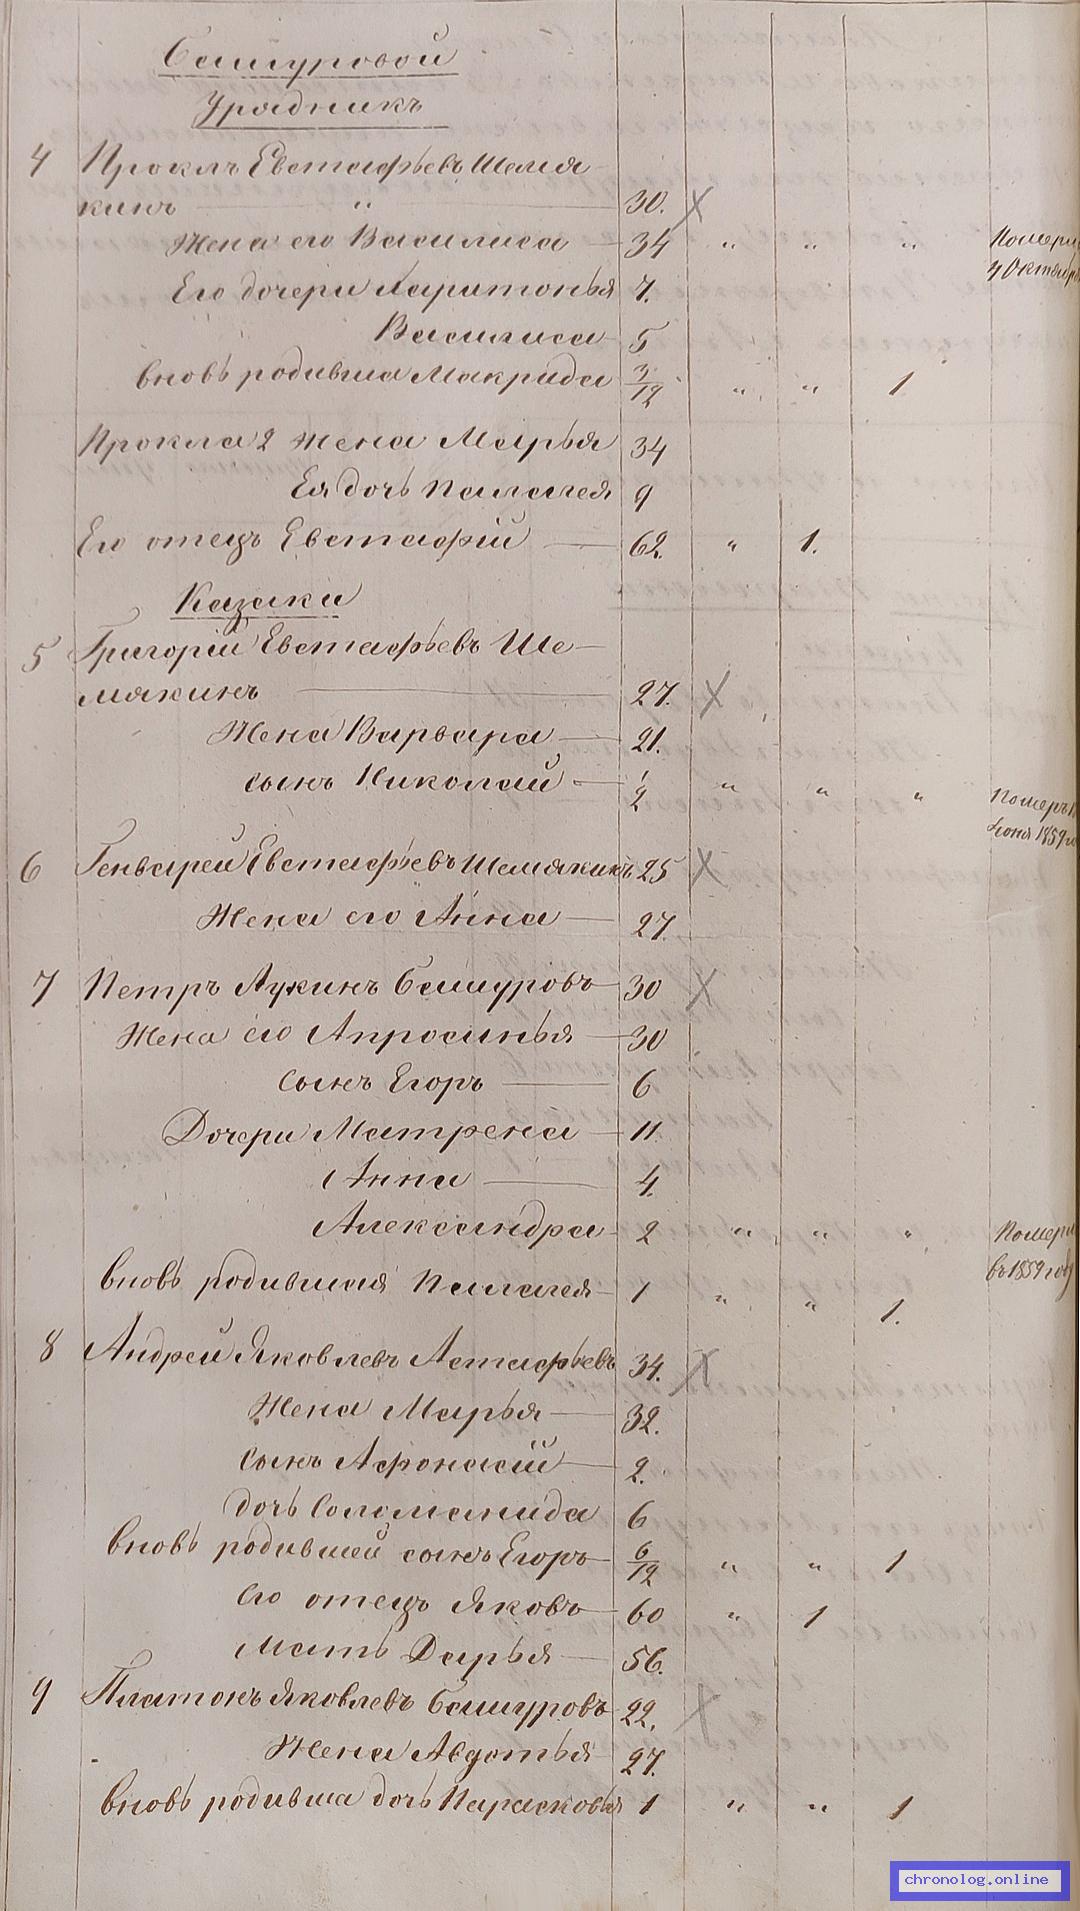 Башуровой
Урядникъ
4 Проклъ Евстафьевъ Шемя
кинъ " 30.
Жена его Василиса 34 " " " Померла
4 Октября
Его дочери Харитонья 7.
Василиса 5
вновь родивша Макрида 3/12 " " 1
Прокла 2 жена Марья 34
Ея дочь Палагея 9
Его отецъ Евстафій 62. " 1.
Казаки
5 Григорій Евстафьевъ Ше-
мякинъ 27.
Жена Варвара 21.
сынъ Николай 1/2 " " " Померъ
Іюня 1859 го
6 Генварей Евстафьевъ Шемякинъ 25
Жена его Анна 27.
7 Петръ Лукинъ Башуровъ 30
Жена его Апросинья 30
сынъ Егоръ 6
Дочери Матрена 11
Анна 4.
Александра 2 " " " Померла
въ 1859 году
вновь родившая Палагея 1 " " 1.
8 Андрей Яковлевъ Астафьевъ 34.
Жена Марья 32.
Сынъ Афонасій 2.
дочь Соломанида 6
вновь родившей сынъ Егоръ 6/12 " " 1
Его отецъ Яковъ 60 " 1
Мать Дарья 56.
9 Платонъ Яковлевъ Башуровъ 22.
Жена Авдотья 27.
вновь родивша дочь Парасковья 1 " " 1
chronolog.online